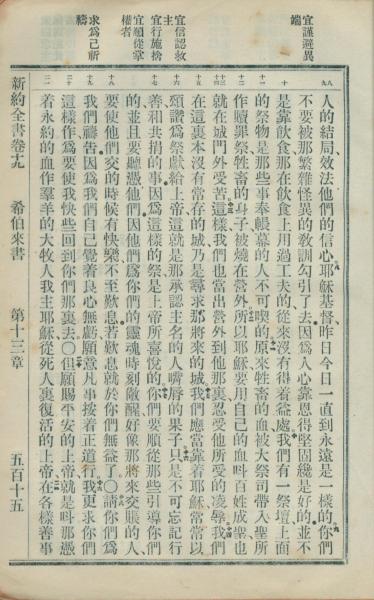 宜謹避異
端
宜信認救
主
宜行施捨
宜順從掌
權者
求爲己祈
禱
八九
人的結局效法他們的信心耶穌基督昨日今日一直到永遠是一樣的你們
不要被那繁雜怪異的教訓勾引了去因爲人心靠恩得堅固纔是好的並不
十
是靠飲食那在飲食上用過工夫的從來沒有得着益處我們有一祭壇上面
十一
的祭物是那些事奉帳幕的人不可喫的原來牲畜的血被大祭司帶入聖所
十二 十三
作贖罪祭牲畜的身子被燒在營外所以耶穌要用自己的血呌百姓成聖也
十四
就在城門外受苦這樣我們也當出營外到他那裏忍受他所受的凌辱我們
十五
在這裏本沒有常存的城乃是尋求那將來的城我們應當靠着耶穌常常以
十六
頌讚爲祭獻給上帝這就是那承認主名的人嘴唇的果子只是不可忘記行
十七
善和共捐的事因爲這樣的祭是上帝所喜悅的你們要順從那些引導你們
的並且要聽憑他們因他們爲你們的靈魂時刻儆醒好像那將來交賬的人
十八
要使他們交的時候有快樂不至歎息若歎息就於你們無益了〇請你們爲
十九
我們禱告因爲我們自己覺着良心無虧願意凡事按着正道行我更求你們
二十
這樣作爲要使我快些回到你們那裏去〇但願賜平安的上帝就是呌那憑
二一
着永約的血作羣羊的大牧人我主耶穌從死人裏復活的上帝在各樣善事
新約全書卷十九 希伯來書 第十三章 五百十五